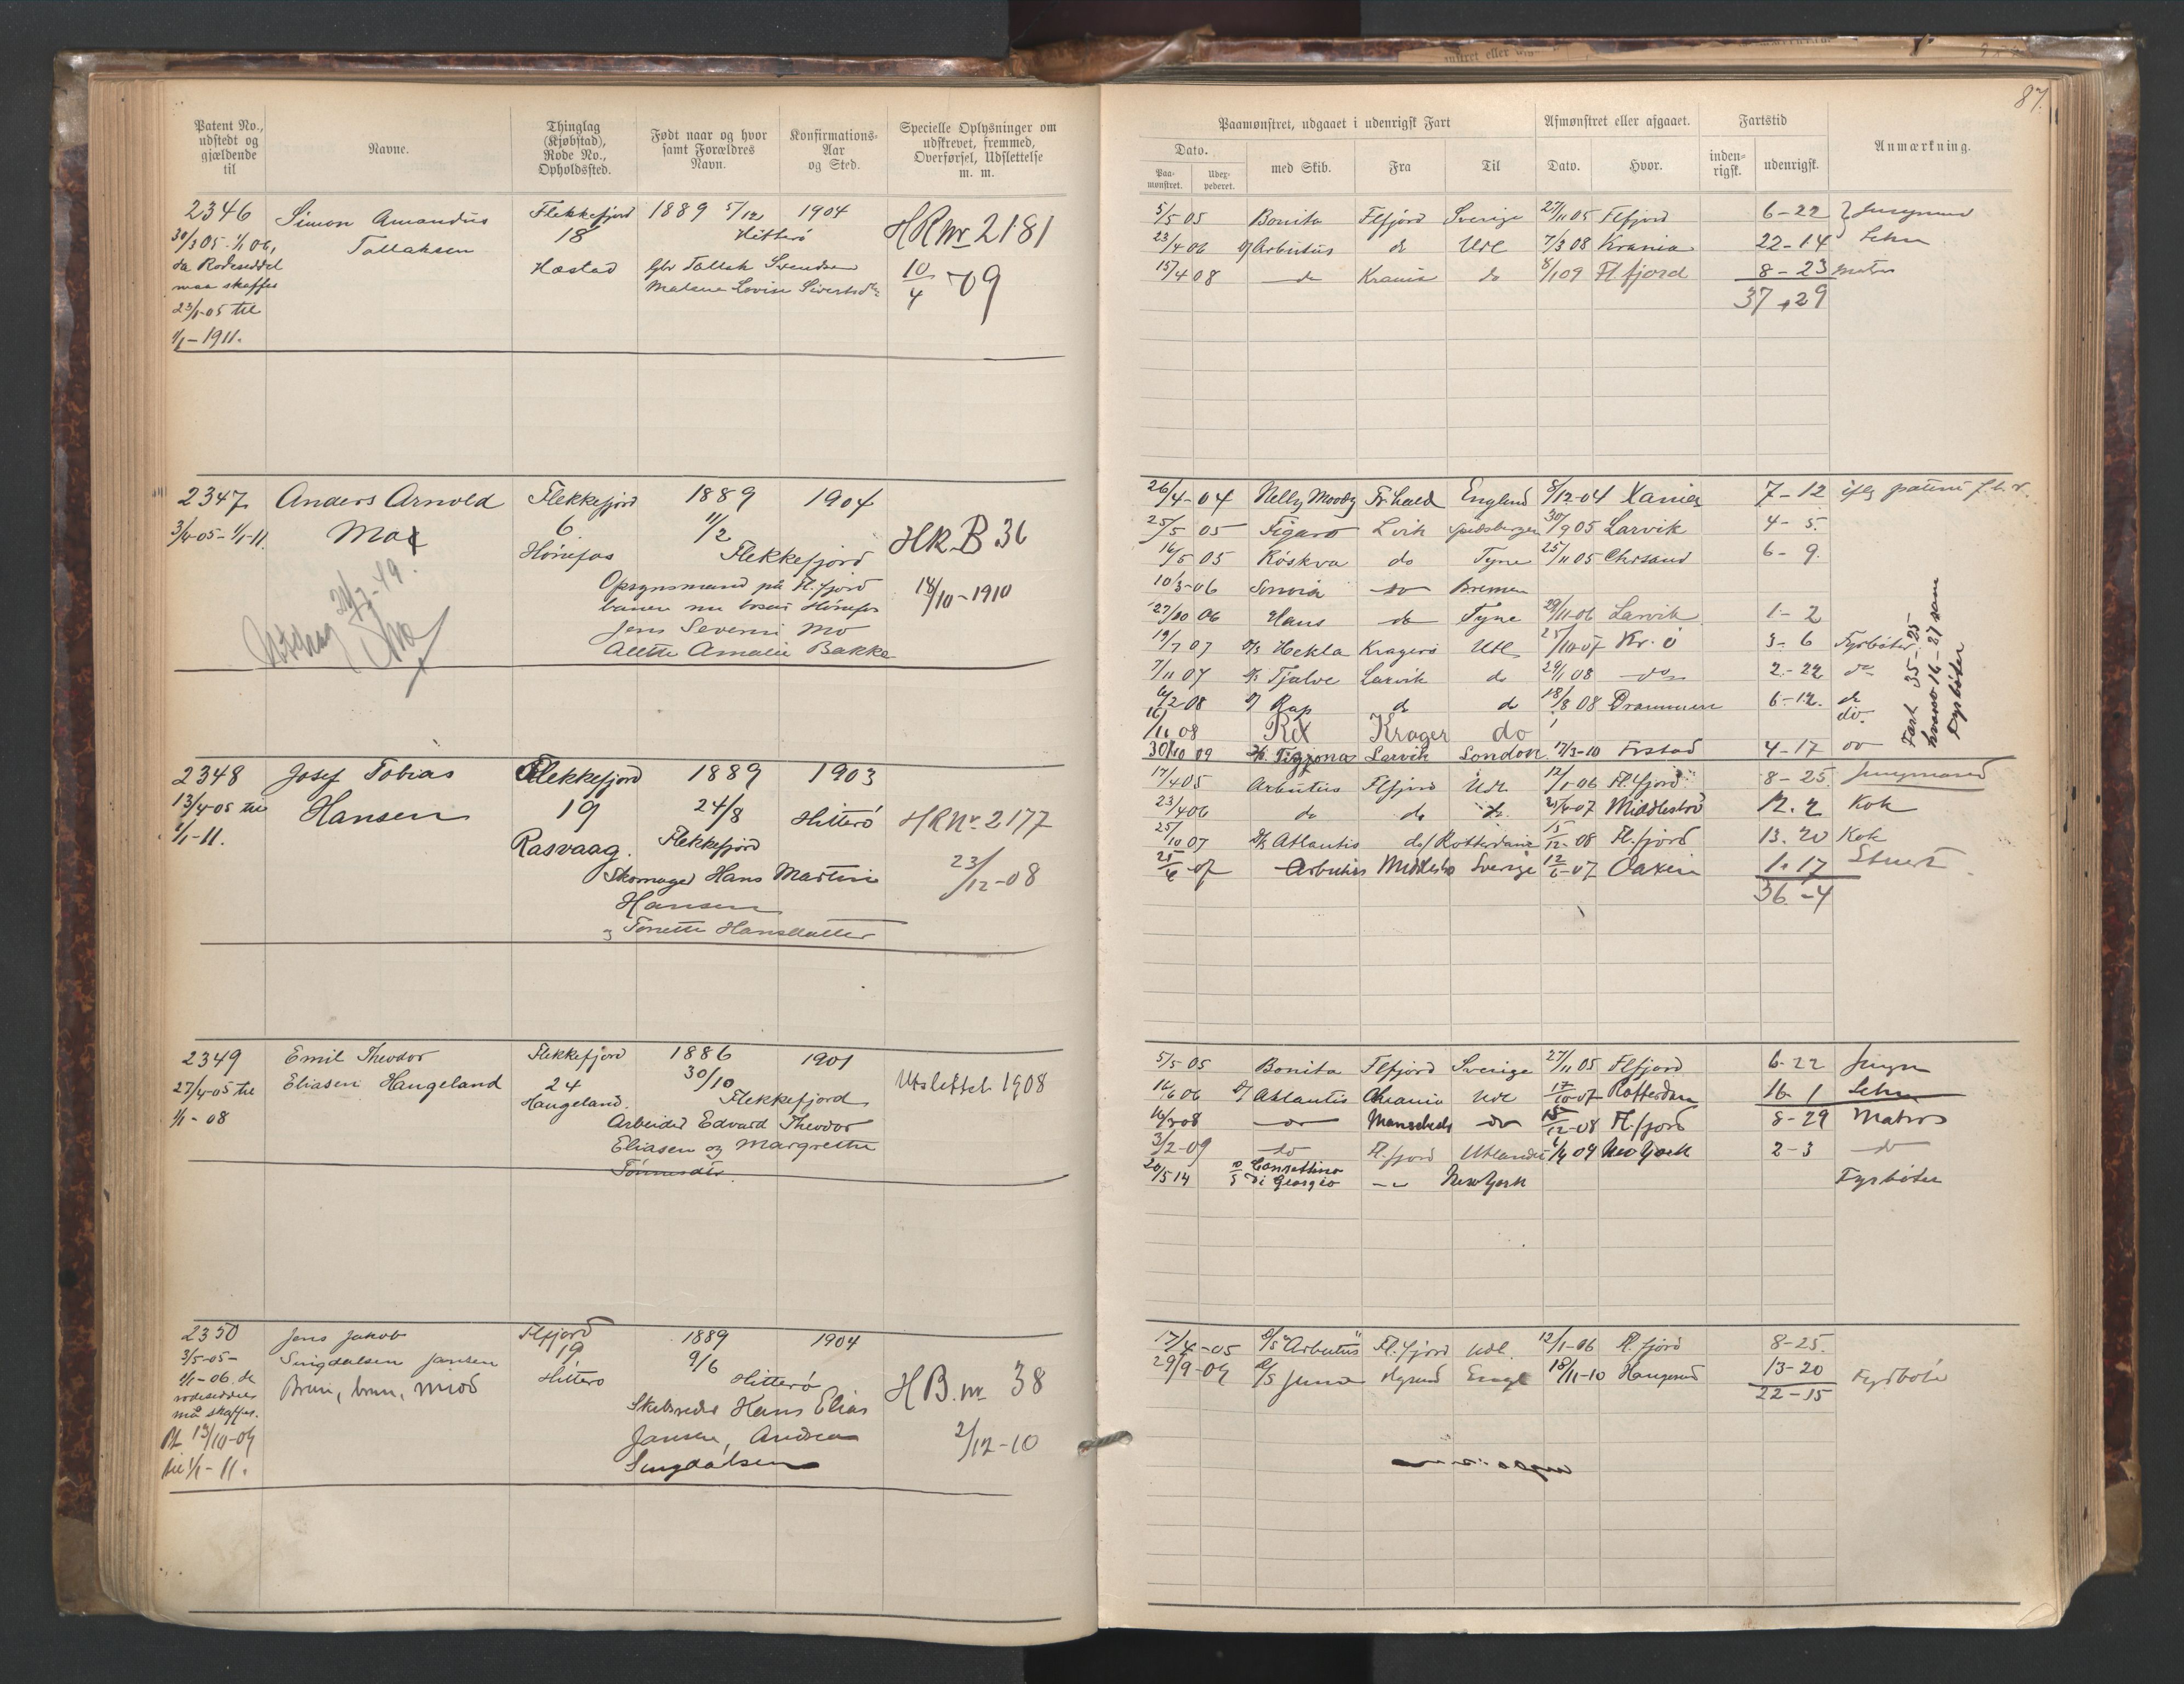 87.
Patent No., udstedt og gjældende til
Navne.
Thinglag (Kjøbstad), Rode No., Opholdssted.
Født naar og hvor samt Forældres Navn.
Konfirmations-Aar og Sted.
Specielle Oplysninger om udskrevet, fremmed, Overførsel, Udslettelse m. m.
Paamønstret, udgaaet i udenrigsk Fart
Afmønstret eller afgaaet.
Fartstid
Anmærkning.
Dato.
Paamønstret. Udexpederet.
med Skib.
Fra
Til
Dato.
Hvor.
indenrigsk.
udenrigsk.
2346 Simon Amandus Flekkefjord 1889 5/12 1904
30/3 05 - 1/1 06, Tallaksen 18 Hitterö HRnr 2181
da Rodeseddel Hæstad Gbr Tallak Svendsen 10/4 - 09
maa skaffes Malene Lovise Sivertsdtr
23/5-05 til
1/1-1911.
5/5 05 Bonita Flfjord Sverige 27/11 05 Flfjord 6-22 Jungmand
23/4 06 D/ Arbutus do Udl 7/3 08 Krania 22-14 Letm
15/4 08 do Krania do 8/1 09 Fl.fjord 8-23 Matros
37,29
2347 Anders Arnold Flekkefjord 1889 1904
3/4-05-1/1-11. Mo 6 11/2 HR B 36
Hönefos Flekkefjord
Opsynsmand på Fl.fjord 18/10-1910
banen nu bosat Hönefos
Jens Severin Mo
Alette Amalie Bakke
26/4-04 Nelly Moody Fr.hald England 8/12-04 Xania 7-12 iflg patent f.h.v.
25/5 05 Figaro Lvik Spidsbergen 30/9 05 Larvik 4-5.
16/5 05 Röskva do Tyne 25/11 05 Chrsand 6-9.
10/3-06 do Bremen
27/10 06 Hans do Tyne 29/11-06 Larvik 1-2
19/7 07 D/s Hekla Kragerö Udl 25/10-07 Kr.ö 3-6 Fyrböter
7/11 07 D/s Tjalve Larvik do 29/1 08 do 2-22 do
6/2-08 D/ Rap do do 18/8 08 Drammen 6-12. do
16/11 08 Rex Krager do do.
30/10 09 Larvik London 17/3-10 4-17 do
Fart 35-25
hvorav 16-27 som
Fyrböter
2348 Josef Tobias Flekkefjord 1889 1903
13/4-05 til Hansen 19 24/8 Hitterö HRNr. 2177
1/1-11. Rasvaag. Flekkefjord
Skomager Hans Martin 23/12-08
Hansen
og Tonette Hansdatter
17/4 05 Arbutus Flfjord Udl 12/1-06 Fl.fjord 8-25. Jungmand
23/4 06 do do do 25/6-07 Middlesbro 12.2 Kok
25/10 07 D/s Atlantis do/Rotterdam 15/12-08 Fl.fjord 13.20 Kok
25/6-07 Arbutus Middlesbro Sverige 12/-07 1.17 Stuert
36-4
2349 Emil Theodor Flekkefjord 1886 1901
27/4-05 til Eliasen Haugeland 24 30/10 Utslettet 1908
1/1-08 Haugeland. Flekkefjord
Arbeider Edvard Theodor
Eliasen og Margrethe
Tönnesdtr.
5/5 05 Bonita Flfjord Sverige 27/11 05 Flfjord 6-22 Jungm
16/6 06 D/ Atlantis Udl 17/10-07 Rotterdam 16-1 Letm
16/3-08 do do 15/12-08 Fl.fjord 8-29 Matros
3/2-09 do Fl.fjord Utlandet 6/4 09 New York 2-3 do
20/5 14 D/S Concettina di Giorgio New York Fyrböter
2350 Jens Jakob Flfjord 1889 1904
3/5-05- Singdalsen Jansen 19 9/6
1/1-06. da Brun, brun, mod Hitterö Hitterö H B. nr 38
rodeseddel Hans Elias
må skaffes. Jansen, Andrea 2/12-10
Pt. 13/10-09 Singdalsen
til 1/1-11.
17/4-05 D/S "Arbutus" Fl.fjord Udl. 12/1-06 Fl.fjord 8-25.
29/9-09 D/S Juno Engl 18/11-10 Haugesund 13-20 Fyrböter
22-15